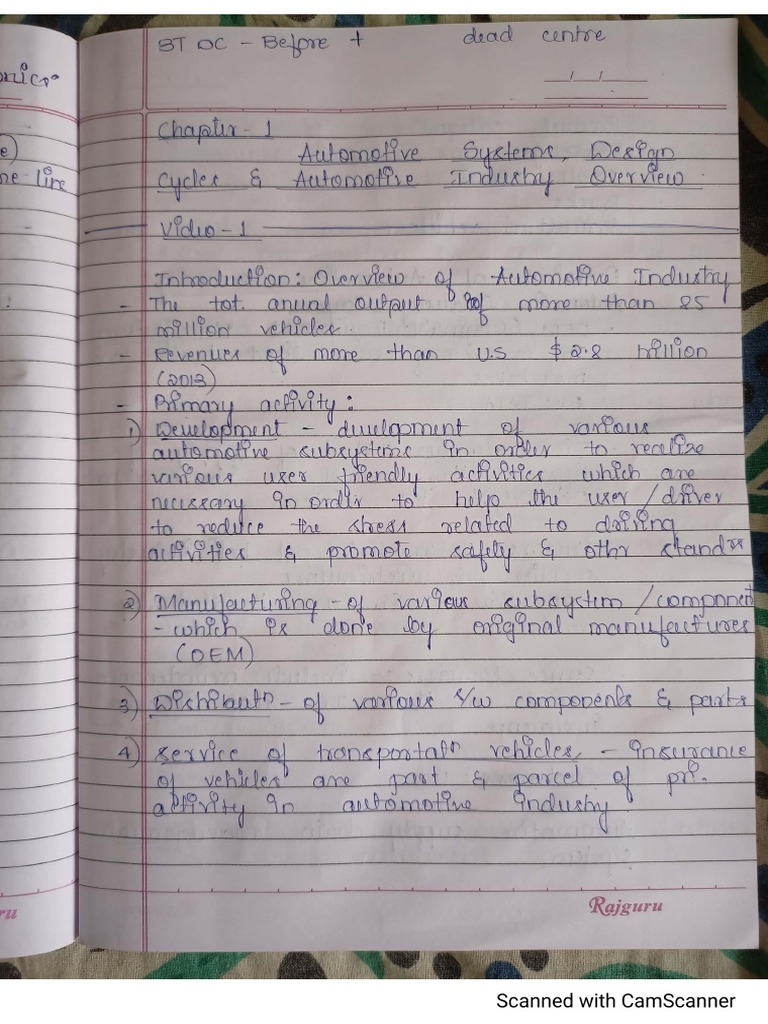 BTDC - Before + dead centre
onics.
/ /
Chapter - 1
e)
Automotive Systems, Design
ne-line
Cycles & Automotive Industry Overview.
Video - 1
Introduction: Overview of Automotive Industry
- The tot. anual output of more than 85
million vehicles.
- Revenues of more than U.S $ 2.8 trillion
(2013)
- Primary activity :
1) Development - development of various
automotive subsystems in order to realize
various user friendly activities which are
necessary in order to help the user / driver
to reduce the stress related to driving
activities & promote safety & othr
2) Manufacturing - of various subsystem / component
- which is done by original manufactures
(OEM)
3) Distributn - of various s/w components & parts
4) Service of transportatn vehicles, - insurance
of vehicles are part & parcel of pri.
activity in automotive industry.
Rajguru
ru
Scanned with CamScanner